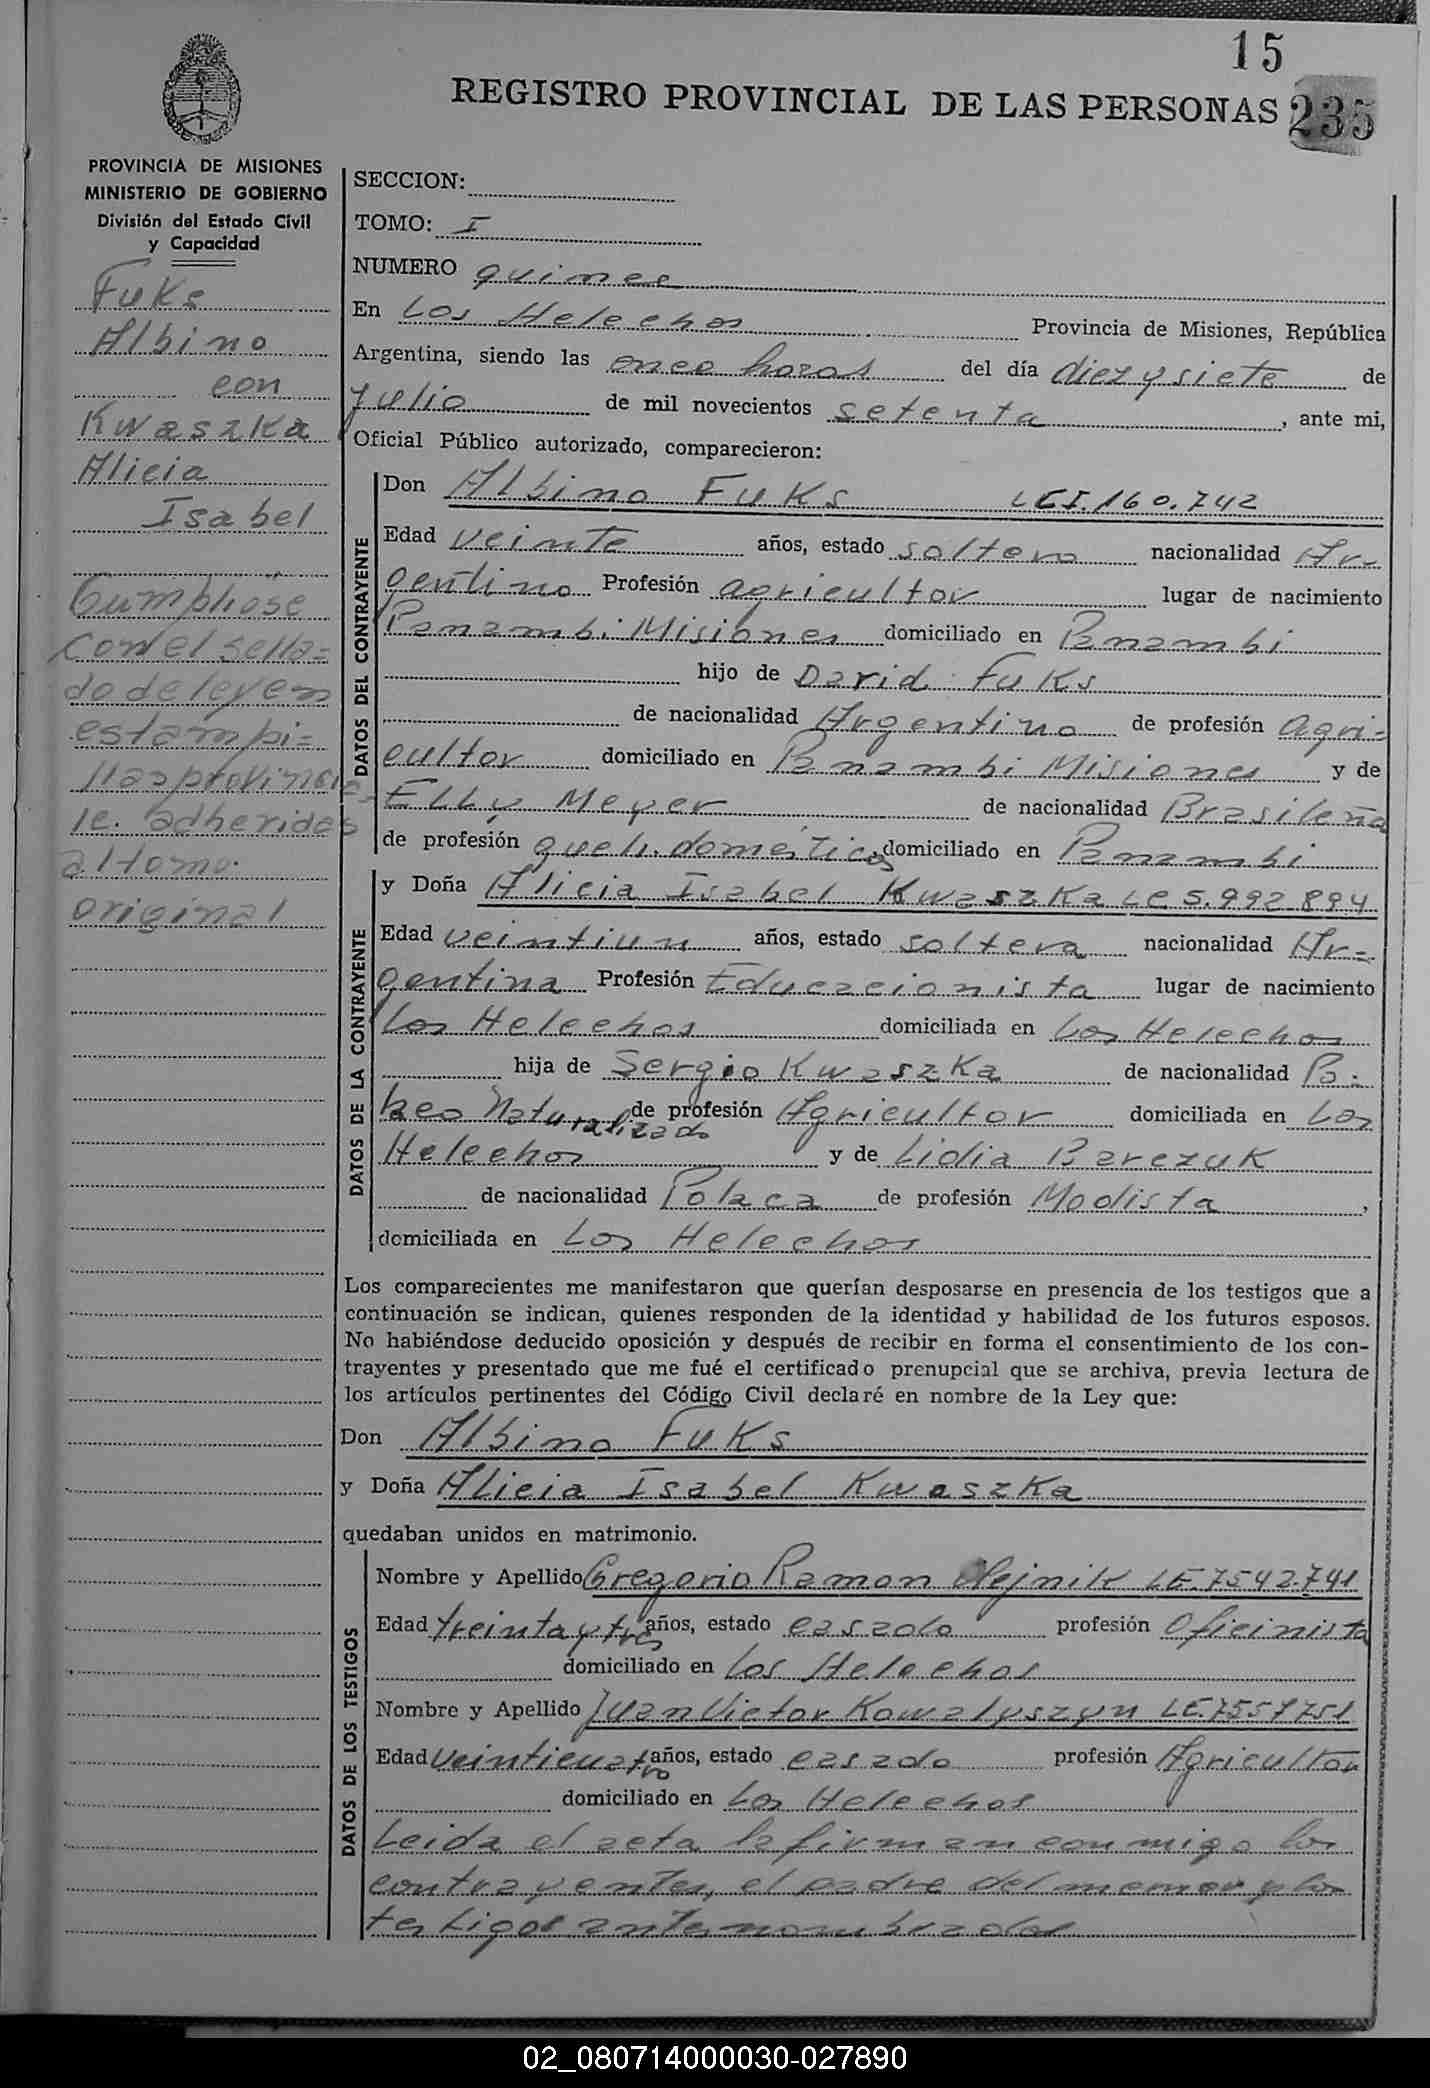 15
REGISTRO PROVINCIAL DE LAS PERSONAS 235
PROVINCIA DE MISIONES
MINISTERIO DE GOBIERNO
División del Estado Civil
y Capacidad
Fuks
Albino
con
Kwaszka
Alicia
Isabel
Cumpliose
con el sella=
do de ley en
estampi=
llas provincia-
le. adheridas
al tomo.
original
SECCION:
TOMO: I
NUMERO quince
En Los Helechos Provincia de Misiones, República
Argentina, siendo las once horas del día diez y siete de
Julio de mil novecientos setenta, ante mi,
Oficial Público autorizado, comparecieron:
DATOS DEL CONTRAYENTE
Don Albino Fuks 160.742
Edad veinte años, estado soltero nacionalidad Ar-
gentino Profesión agricultor lugar de nacimiento
Panambi Misiones domiciliado en Panambi
hijo de David Fuks
de nacionalidad Argentino de profesión agri=
cultor domiciliado en Panambi Misiones y de
Elly Meyer de nacionalidad Brasileña
de profesión queh. domésticos, domiciliado en Panambi
DATOS DE LA CONTRAYENTE
y Doña Alicia Isabel Kwaszka LC 5.992.894
Edad veintiun años, estado soltera nacionalidad Ar=
gentina Profesión Educacionista lugar de nacimiento
Los Helechos domiciliada en Los Helechos
hija de Sergio Kwaszka de nacionalidad Po-
laco Naturalizado de profesión Agricultor domiciliada en Los
Helechos y de Lidia Barczuk
de nacionalidad Polaca de profesión Modista,
domiciliada en Los Helechos
Los comparecientes me manifestaron que querían desposarse en presencia de los testigos que a
continuación se indican, quienes responden de la identidad y habilidad de los futuros esposos.
No habiéndose deducido oposición y después de recibir en forma el consentimiento de los con-
trayentes y presentado que me fué el certificado prenupcial que se archiva, previa lectura de
los artículos pertinentes del Código Civil declaré en nombre de la Ley que:
Don Albino Fuks
y Doña Alicia Isabel Kwaszka
quedaban unidos en matrimonio.
DATOS DE LOS TESTIGOS
Nombre y Apellido Gregorio Ramon Olejnik LE.7542.741
Edad treinta y tres años, estado casado profesión Oficinista
domiciliado en Los Helechos
Nombre y Apellido Juan Victor Kowalyszyn LE.7557751
Edad veinticuatro años, estado casado profesión Agricultor
domiciliado en Los Helechos
Leida el acta la firman conmigo los
contrayentes, el padre del menor y los
testigos antes nombrados
02_080714000030-027890